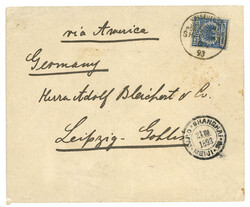 via America
Germany
Herrn Adolf Bleichert & Co.
Leipzig-Gohlis
93
SHANGHAI
1893